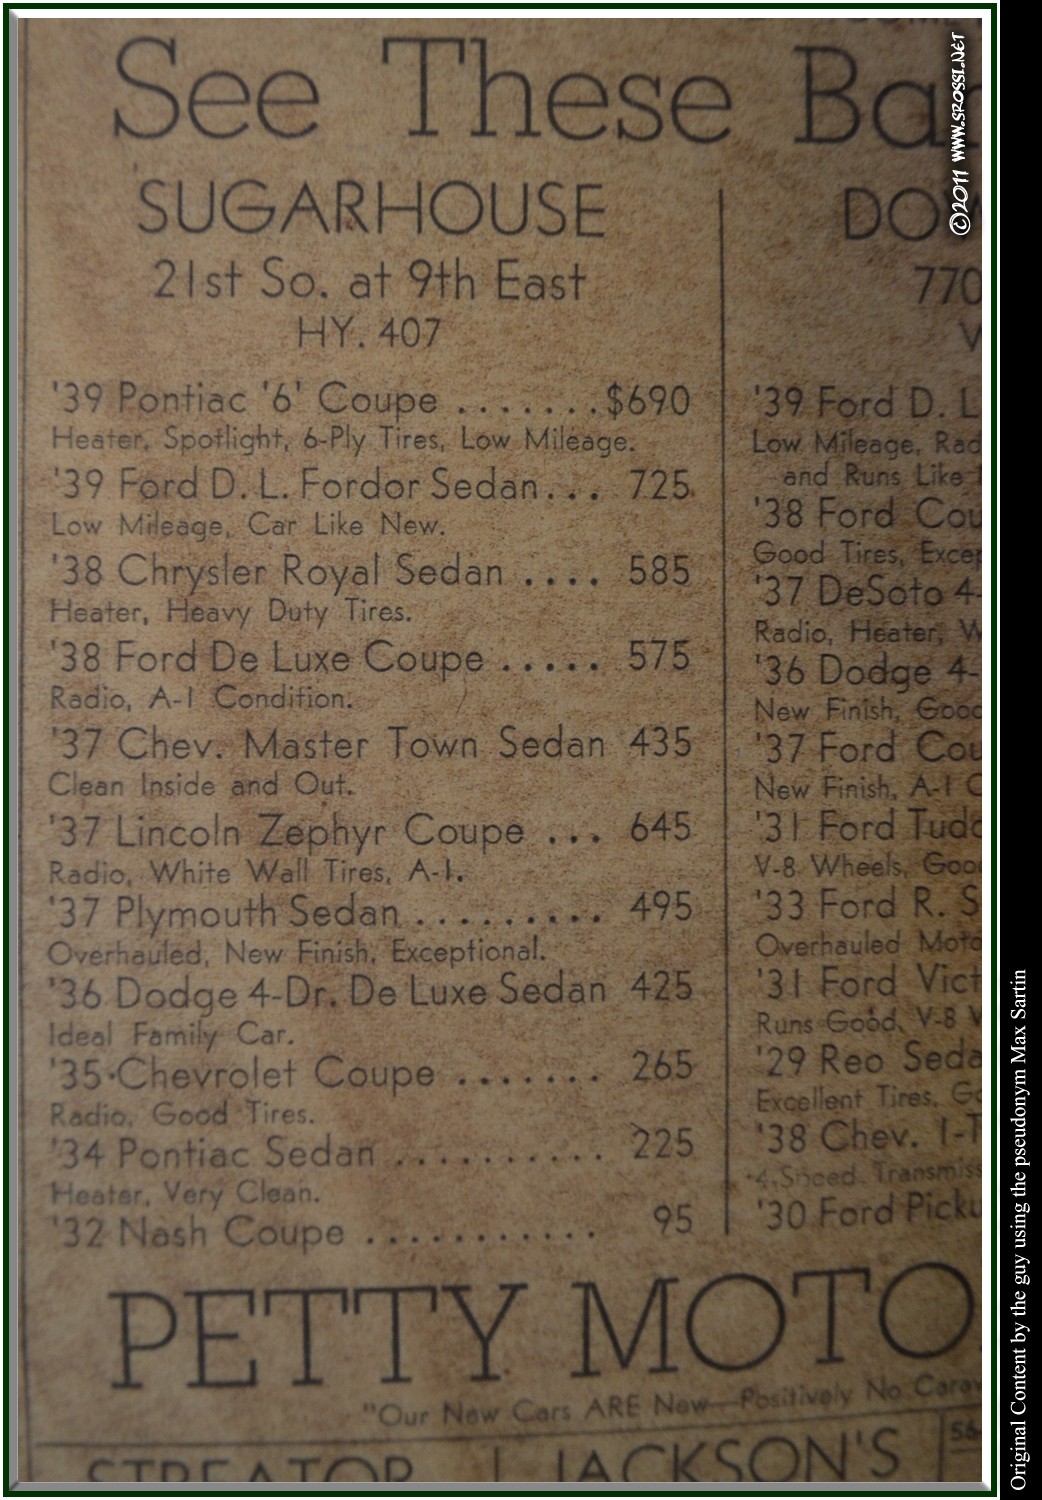 See These
SUGARHOUSE
21st So. at 9th East
HY. 407
'39 Pontiac '6' Coupe .......$690
Heater, Spotlight, 6-Ply Tires, Low Mileage.
'39 Ford D. L. Fordor Sedan... 725
Low Mileage, Car Like New.
'38 Chrysler Royal Sedan .... 585
Heater, Heavy Duty Tires.
'38 Ford De Luxe Coupe ..... 575
Radio, A-1 Condition.
'37 Chev. Master Town Sedan 435
Clean Inside and Out.
'37 Lincoln Zephyr Coupe ... 645
Radio, White Wall Tires, A-1.
'37 Plymouth Sedan ......... 495
Overhauled, New Finish, Exceptional.
'36 Dodge 4-Dr. De Luxe Sedan 425
Ideal Family Car.
'35 Chevrolet Coupe ....... 265
Radio, Good Tires.
'34 Pontiac Sedan .......... 225
Heater, Very Clean.
'32 Nash Coupe ........... 95
770
'39 Ford D. L
Low Mileage,
and Runs Like
'38 Ford
Good Tires,
'37 DeSoto 4-
Radio, Heater,
'36 Dodge 4-
New Finish,
'37 Ford
New Finish, A-1
'31 Ford
V-8 Wheels,
'33 Ford R.
Overhauled
'31 Ford
Runs Good, V-8
'29 Reo
Excellent Tires,
'38 Chev.
4 Speed
'30 Ford
PETTY
"Our New Cars ARE New—Positively No
STREATOR
JACKSON'S
©2011 www.srossi.net
Original Content by the guy using the pseudonym Max Sartin